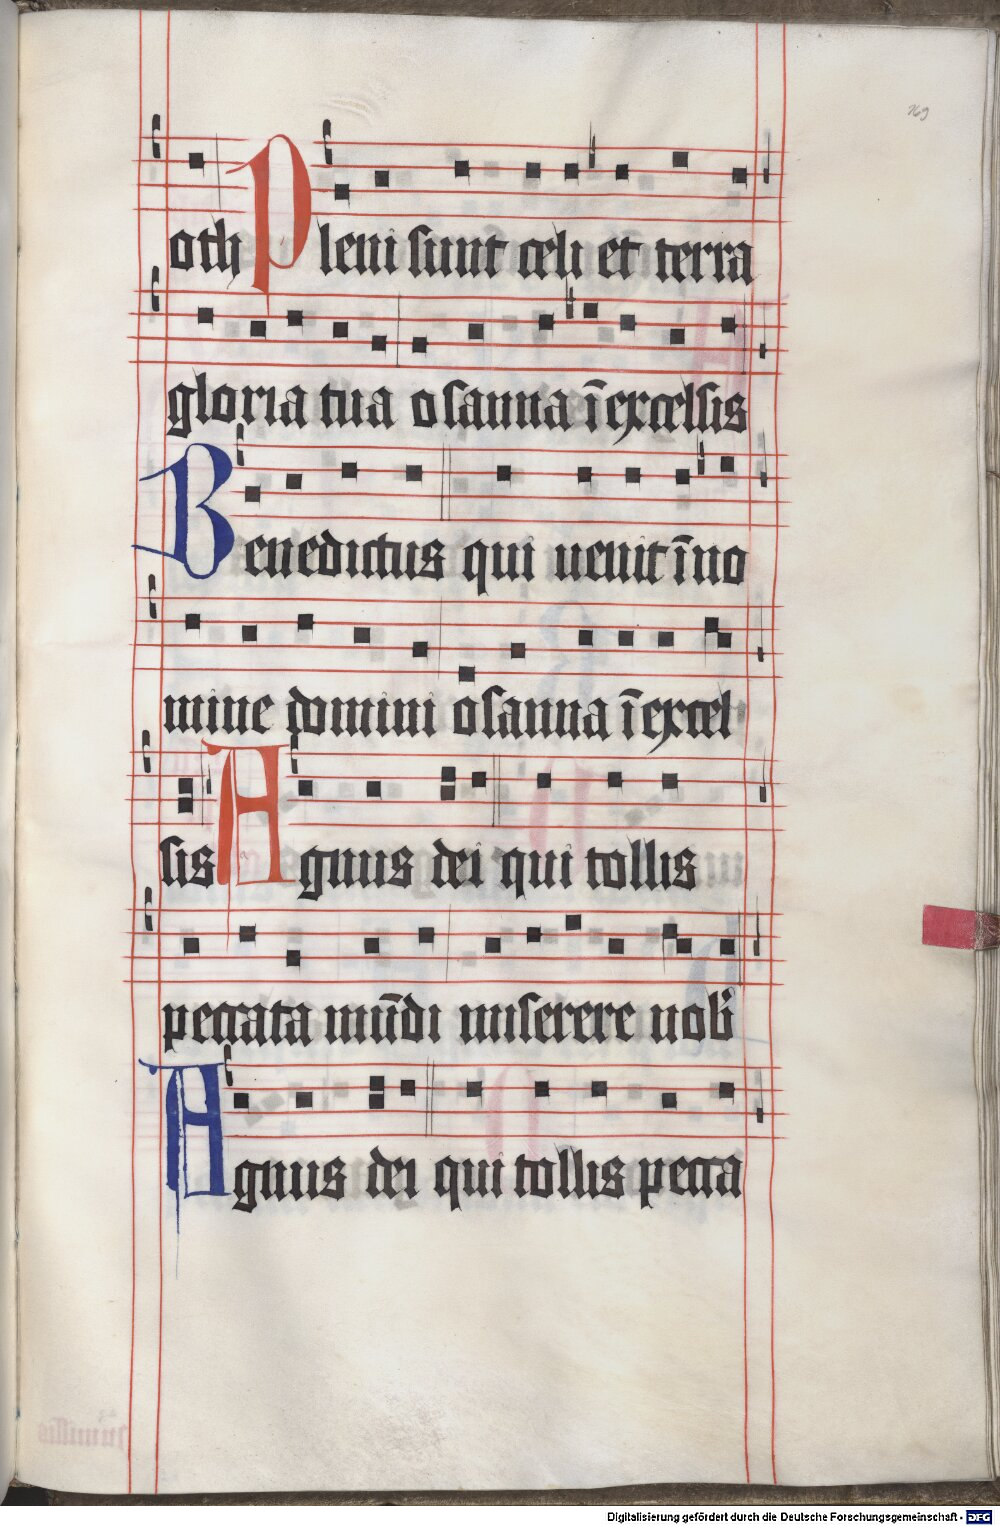 169
oth Pleni sunt celi et terra
gloria tua osanna īexcelsis
Benedictus qui uenit īno
mine domini osanna īexcel
sis Agnus dei qui tollis
peccata mūdi miserere nob'
Agnus dei qui tollis pecca
Digitalisierung gefördert durch die Deutsche Forschungsgemeinschaft - DFG